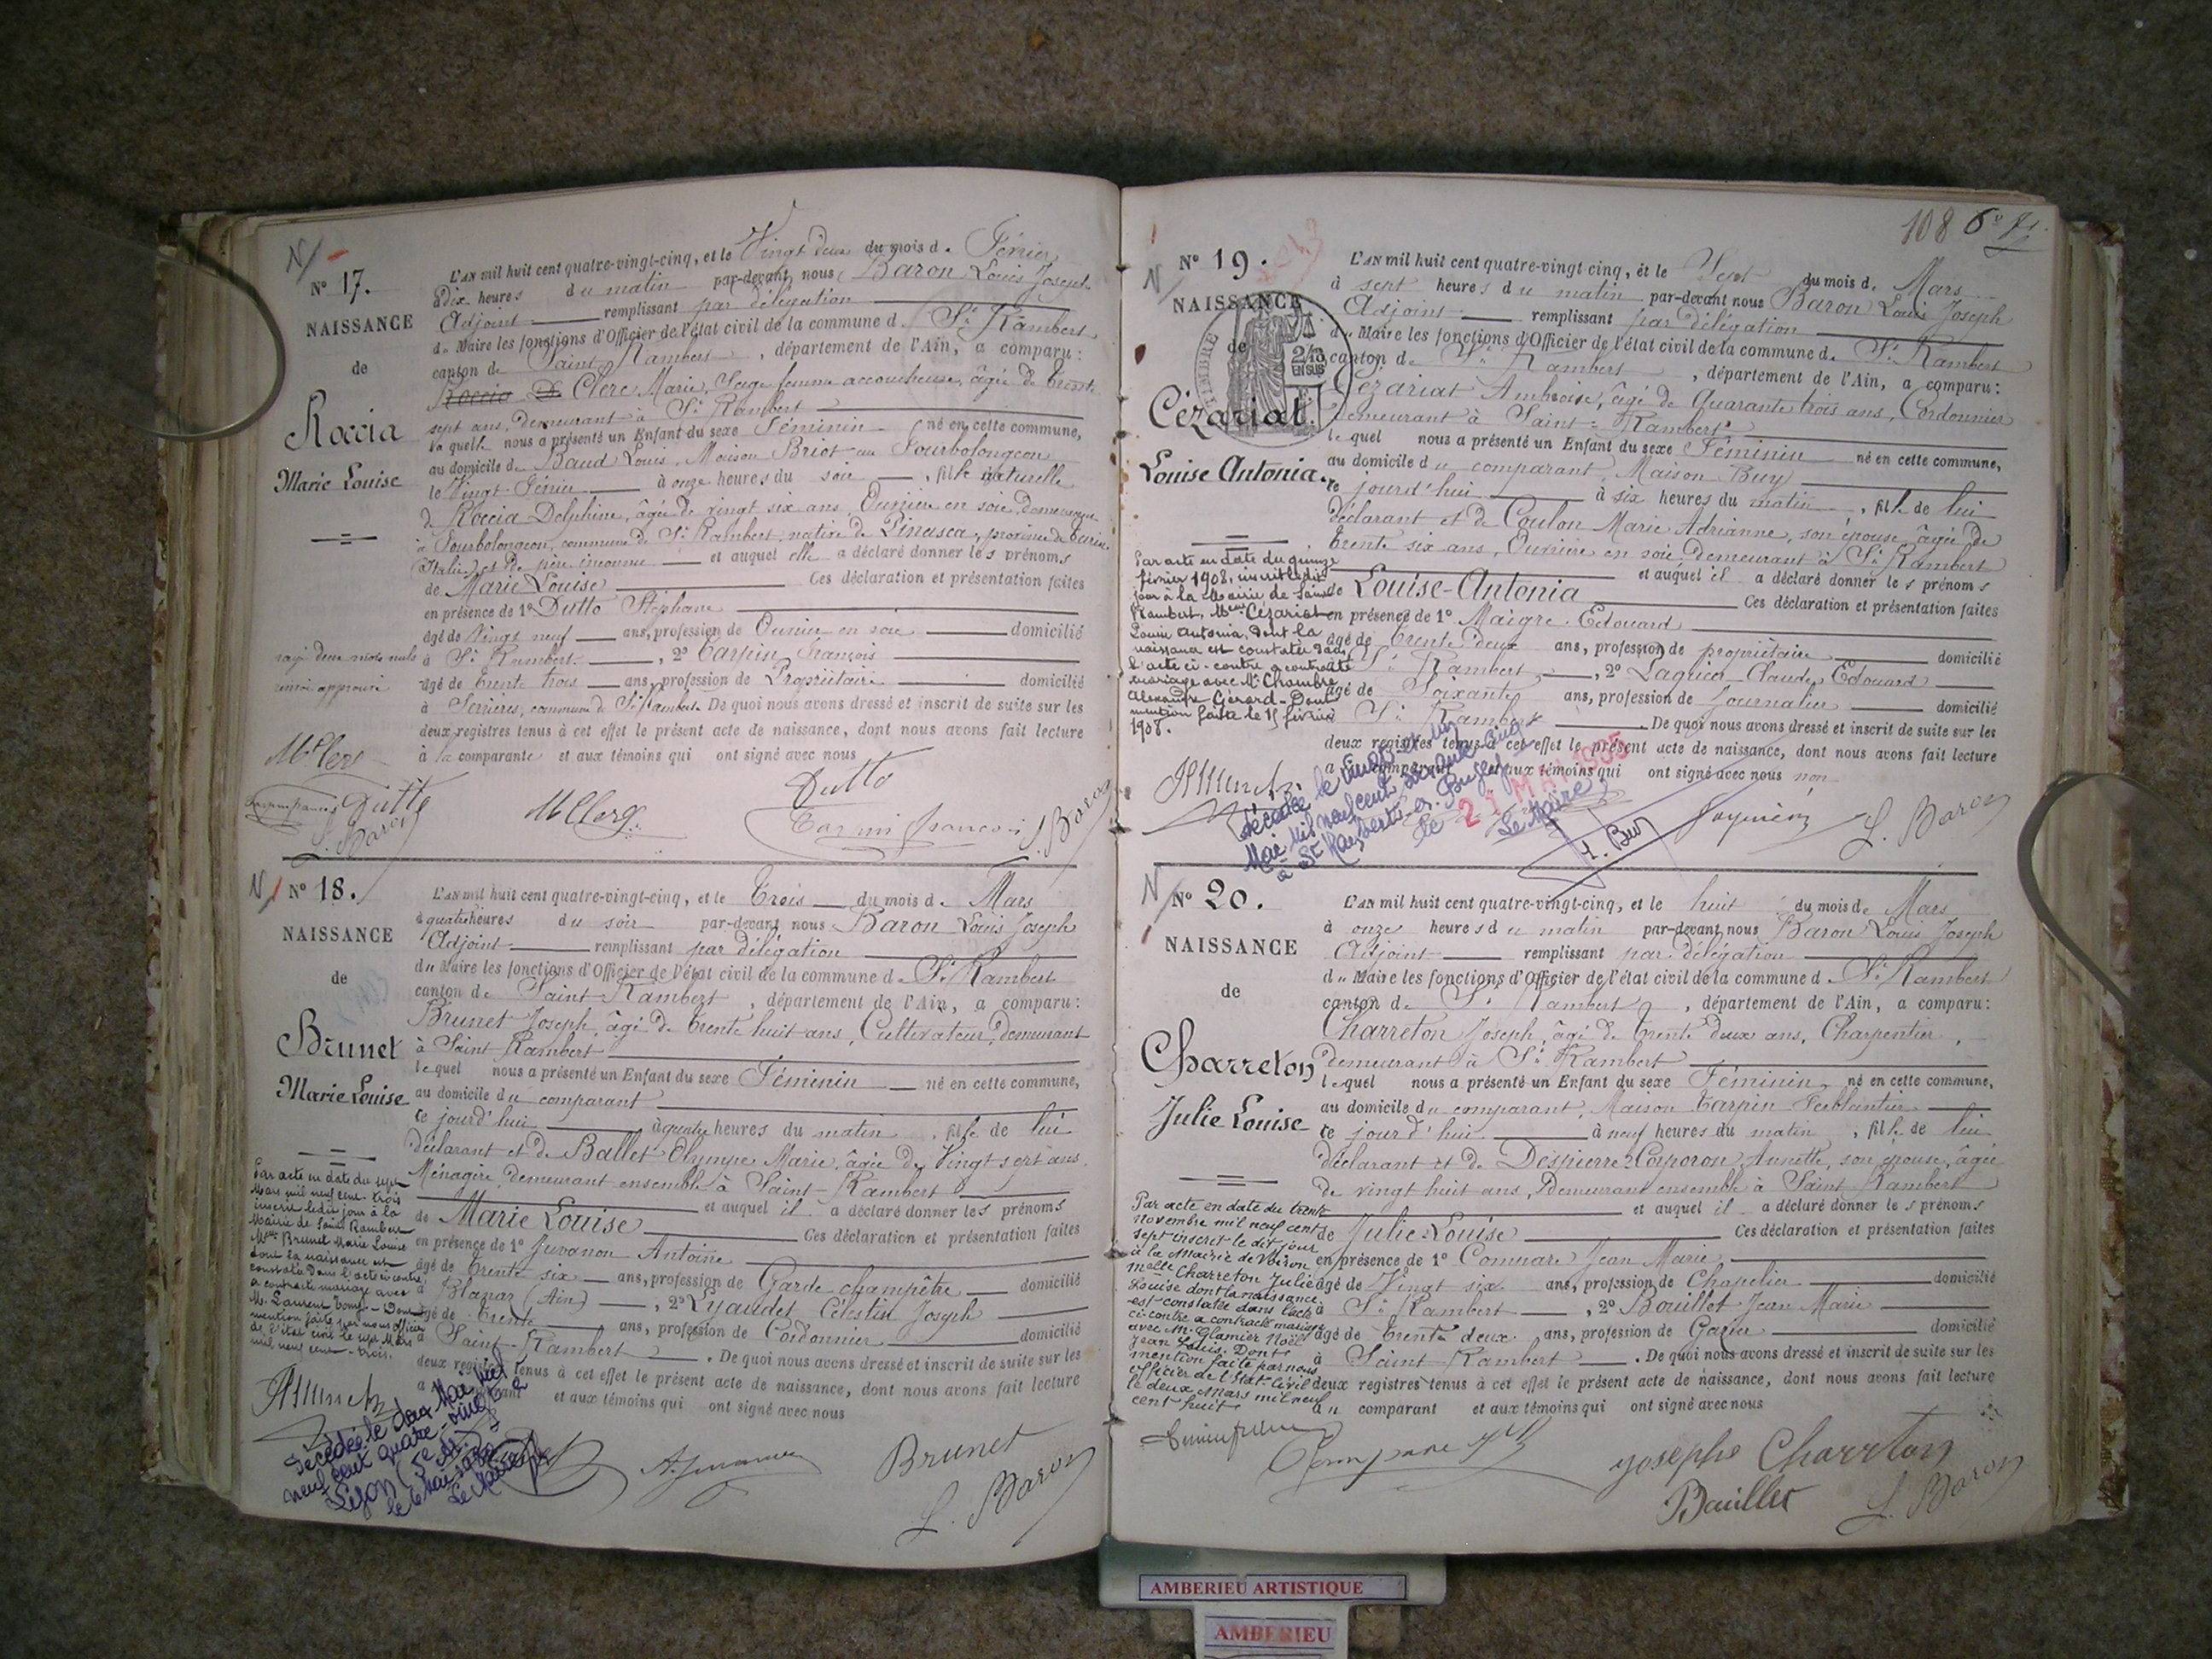 N
N° 17.
NAISSANCE
de
Roccia
Marie Louise
L'AN mil huit cent quatre-vingt-cinq, et le Vingt deux du mois d. Février
à dix heures du matin par-devant nous Baron Louis Joseph
Adjoint remplissant par délégation
d. Maire les fonctions d'Officier de l'état civil de la commune d. St Rambert
canton de Saint Rambert, département de l'Ain, a comparu:
Roccia De Clerc Marie, Sage femme accoucheuse, âgée de trente
sept ans, demeurant à St Rambert
la quelle nous a présenté un Enfant du sexe Féminin né en cette commune,
au domicile de Baud Louis, Maison Briot au Fourbolongeon
le Vingt Février à onze heures du soir, fille naturelle
de Roccia Delphine, âgée de vingt six ans, Ouvrière en soie, demeurant
à Fourbolongeon, commune de St Rambert, native de Pinasca, province de Turin
(Italie) et de père inconnu et auquel elle a déclaré donner les prénoms
de Marie Louise Ces déclaration et présentation faites
en présence de 1° Dutto Stéphane
âgé de Vingt neuf ans, profession de Ouvrier en soie domicilié
à St Rambert, 2° Carpin François
âgé de trente trois ans, profession de Propriétaire domicilié
à Serrières, commune de St Rambert. De quoi nous avons dressé et inscrit de suite sur les
deux registres tenus à cet effet le présent acte de naissance, dont nous avons fait lecture
à la comparante et aux témoins qui ont signé avec nous
rayé deux mots nuls
renvoi approuvé
M Clerc
Dutto
L. Baron
M Clerc
Dutto
L. Baron
N
N° 18.
NAISSANCE
de
Brunet
Marie Louise
L'AN mil huit cent quatre-vingt-cinq, et le Trois du mois d. Mars
à quatre heures du soir par-devant nous Baron Louis Joseph
Adjoint remplissant par délégation
du Maire les fonctions d'Officier de l'état civil de la commune d. St Rambert
canton de Saint-Rambert, département de l'Ain, a comparu:
Brunet Joseph, âgé de trente huit ans, Cultivateur, demeurant
à Saint Rambert
le quel nous a présenté un Enfant du sexe Féminin né en cette commune,
au domicile du comparant
ce jourd'hui à quatre heures du matin, fille de lui
déclarant et de Ballet Olympe Marie, âgée de Vingt sept ans,
Ménagère, demeurant ensemble à Saint-Rambert
et auquel il a déclaré donner les prénoms
de Marie Louise Ces déclaration et présentation faites
en présence de 1° Juvanon Antoine
âgé de trente six ans, profession de Garde champêtre domicilié
à Blanaz (Ain), 2° Lyaudet Célestin Joseph
âgé de trente ans, profession de Cordonnier domicilié
à Saint-Rambert. De quoi nous avons dressé et inscrit de suite sur les
deux registres tenus à cet effet le présent acte de naissance, dont nous avons fait lecture
au comparant et aux témoins qui ont signé avec nous
Par acte en date du sept
Mars mil neuf cent trois
inscrit le dit jour à la
Mairie de Saint Rambert
Melle Brunet Marie Louise
dont la naissance est
constatée dans l'acte ci contre
a contracté mariage avec
M. Laurent - Dont
mention faite par nous officier
de l'état civil le sept Mars
mil neuf cent trois.
Décédée le deux Mai mil
neuf cent quatre-vingt à
Lyon (5e Ar.)
Le Maire
Brunet
L. Baron
108
N
N° 19.
NAISSANCE
de
TIMBRE
2/10
EN SUS
Cézariat.
Louise Antonia.
L'AN mil huit cent quatre-vingt-cinq, et le Sept du mois d. Mars
à sept heures du matin par-devant nous Baron Louis Joseph
Adjoint remplissant par délégation
du Maire les fonctions d'Officier de l'état civil de la commune d. St Rambert
canton de St Rambert, département de l'Ain, a comparu:
Cézariat Ambroise, âgé de Quarante trois ans, Cordonnier
demeurant à Saint-Rambert
le quel nous a présenté un Enfant du sexe Féminin né en cette commune,
au domicile du comparant, Maison Buy
ce jourd'hui à six heures du matin, fille de lui
déclarant et de Coulon Marie Adrianne, son épouse, âgée de
trente six ans, Ouvrière en soie, demeurant à St Rambert
et auquel il a déclaré donner les prénoms
de Louise-Antonia Ces déclaration et présentation faites
en présence de 1° Maigre Edouard
âgé de trente deux ans, profession de propriétaire domicilié
à St Rambert, 2° Claude Edouard
âgé de Soixante ans, profession de Journalier domicilié
à St Rambert. De quoi nous avons dressé et inscrit de suite sur les
deux registres tenus à cet effet le présent acte de naissance, dont nous avons fait lecture
au comparant et aux témoins qui ont signé avec nous non
Par acte en date du quinze
février 1908, inscrit le dit
jour à la Mairie de Saint
Rambert, Melle Cézariat
Louise Antonia, dont la
naissance est constatée dans
l'acte ci-contre a contracté
mariage avec Mr Chambre
Alexandre Gérard - Dont
mention faite le 15 février
1908.
Décédée le vingt et un
Mai mil neuf cent soixante cinq
à St Rambert-en-Bugey
le 21 MAI 1965
Le Maire
L. Baron
N
N° 20.
NAISSANCE
de
Charreton
Julie Louise
L'AN mil huit cent quatre-vingt-cinq, et le huit du mois d. Mars
à onze heures du matin par-devant nous Baron Louis Joseph
Adjoint remplissant par délégation
du Maire les fonctions d'Officier de l'état civil de la commune d. St Rambert
canton de St Rambert, département de l'Ain, a comparu:
Charreton Joseph, âgé de trente deux ans, Charpentier,
demeurant à St Rambert
le quel nous a présenté un Enfant du sexe Féminin, né en cette commune,
au domicile du comparant, Maison Carpin Ferblantier
ce jourd'hui à neuf heures du matin, fille de lui
déclarant et de Despierre-Corporon Annette, son épouse, âgée
de vingt huit ans, demeurant ensemble à Saint Rambert
et auquel il a déclaré donner les prénoms
de Julie-Louise Ces déclaration et présentation faites
en présence de 1° Jean Marie
âgé de Vingt six ans, profession de Chapelier domicilié
à St Rambert, 2° Bouillet Jean Marie
âgé de trente deux ans, profession de domicilié
à Saint Rambert. De quoi nous avons dressé et inscrit de suite sur les
deux registres tenus à cet effet le présent acte de naissance, dont nous avons fait lecture
au comparant et aux témoins qui ont signé avec nous
Par acte en date du trente
novembre mil neuf cent
sept inscrit le dit jour
à la Mairie de Voiron
Melle Charreton Julie
Louise dont la naissance
est constatée dans l'acte
ci-contre a contracté mariage
avec M. Glamier Noël
Jean Louis. Dont
mention faite par nous
officier de l'Etat-Civil
le deux Mars mil neuf
cent huit.
Josephe Charreton
Bouillet
L. Baron
AMBERIEU ARTISTIQUE
AMBERIEU